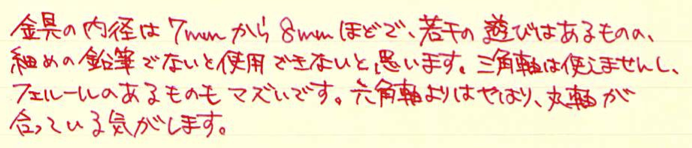 金具の内径は7mmから8mmほどで、若干の遊びはあるものの、
細めの鉛筆でないと使用できないと思います。三角軸は使えませんし、
フェルールのあるものもマズいです。六角軸よりはやはり、丸軸が
合っている気がします。